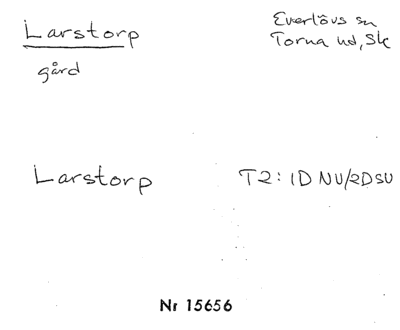 Larstorp
Everlövs sn
Torna hd, Sk
gård
Larstorp
T2: 1D NV/2D SV
Nr 15656